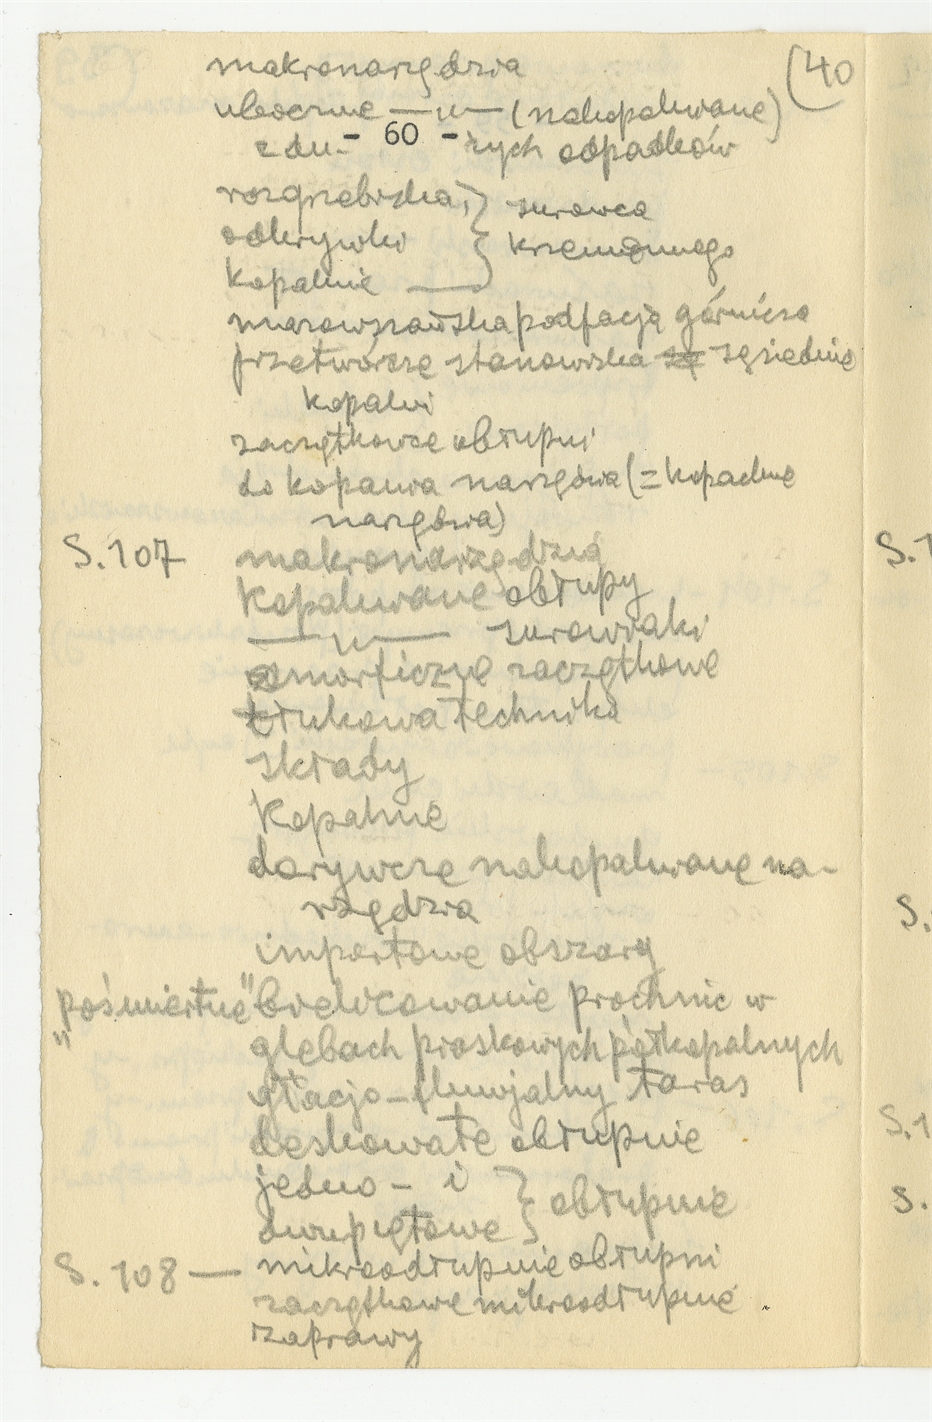 (40
makronarzędzia
uboczne —"— (nakopalniane)
z du- - 60 - żych odpadków
rozgrzebiska,
odkrywki } surowca
kopalnie — krzemiennego
mazowszańska podfacja górnicza
przetwórcze stanowiska sąsiednie
kopalni
zaczątkowe obłupni
do kopania narzędzia (= kopalne
narzędzia)
S. 107 makronarzędzia
kopalniane obłupy
—"— surowiaki
amorficzne zaczątkowe
tłukowa technika
składy
kopalnie
dorywcze nakopalniane na-
rzędzia
importowe obszary
"pośmiertne" bielicowanie próchnic w
glebach piaskowych półkopalnych
glacjo-fluwjalny taras
deskowate obłupnie
jedno- i } obłupnie
dwupiętowe
S. 108 — mikroodłupnie obłupni
zaczątkowe mikroodłupnie
zaprawy
S.1
S.
S.1
S.